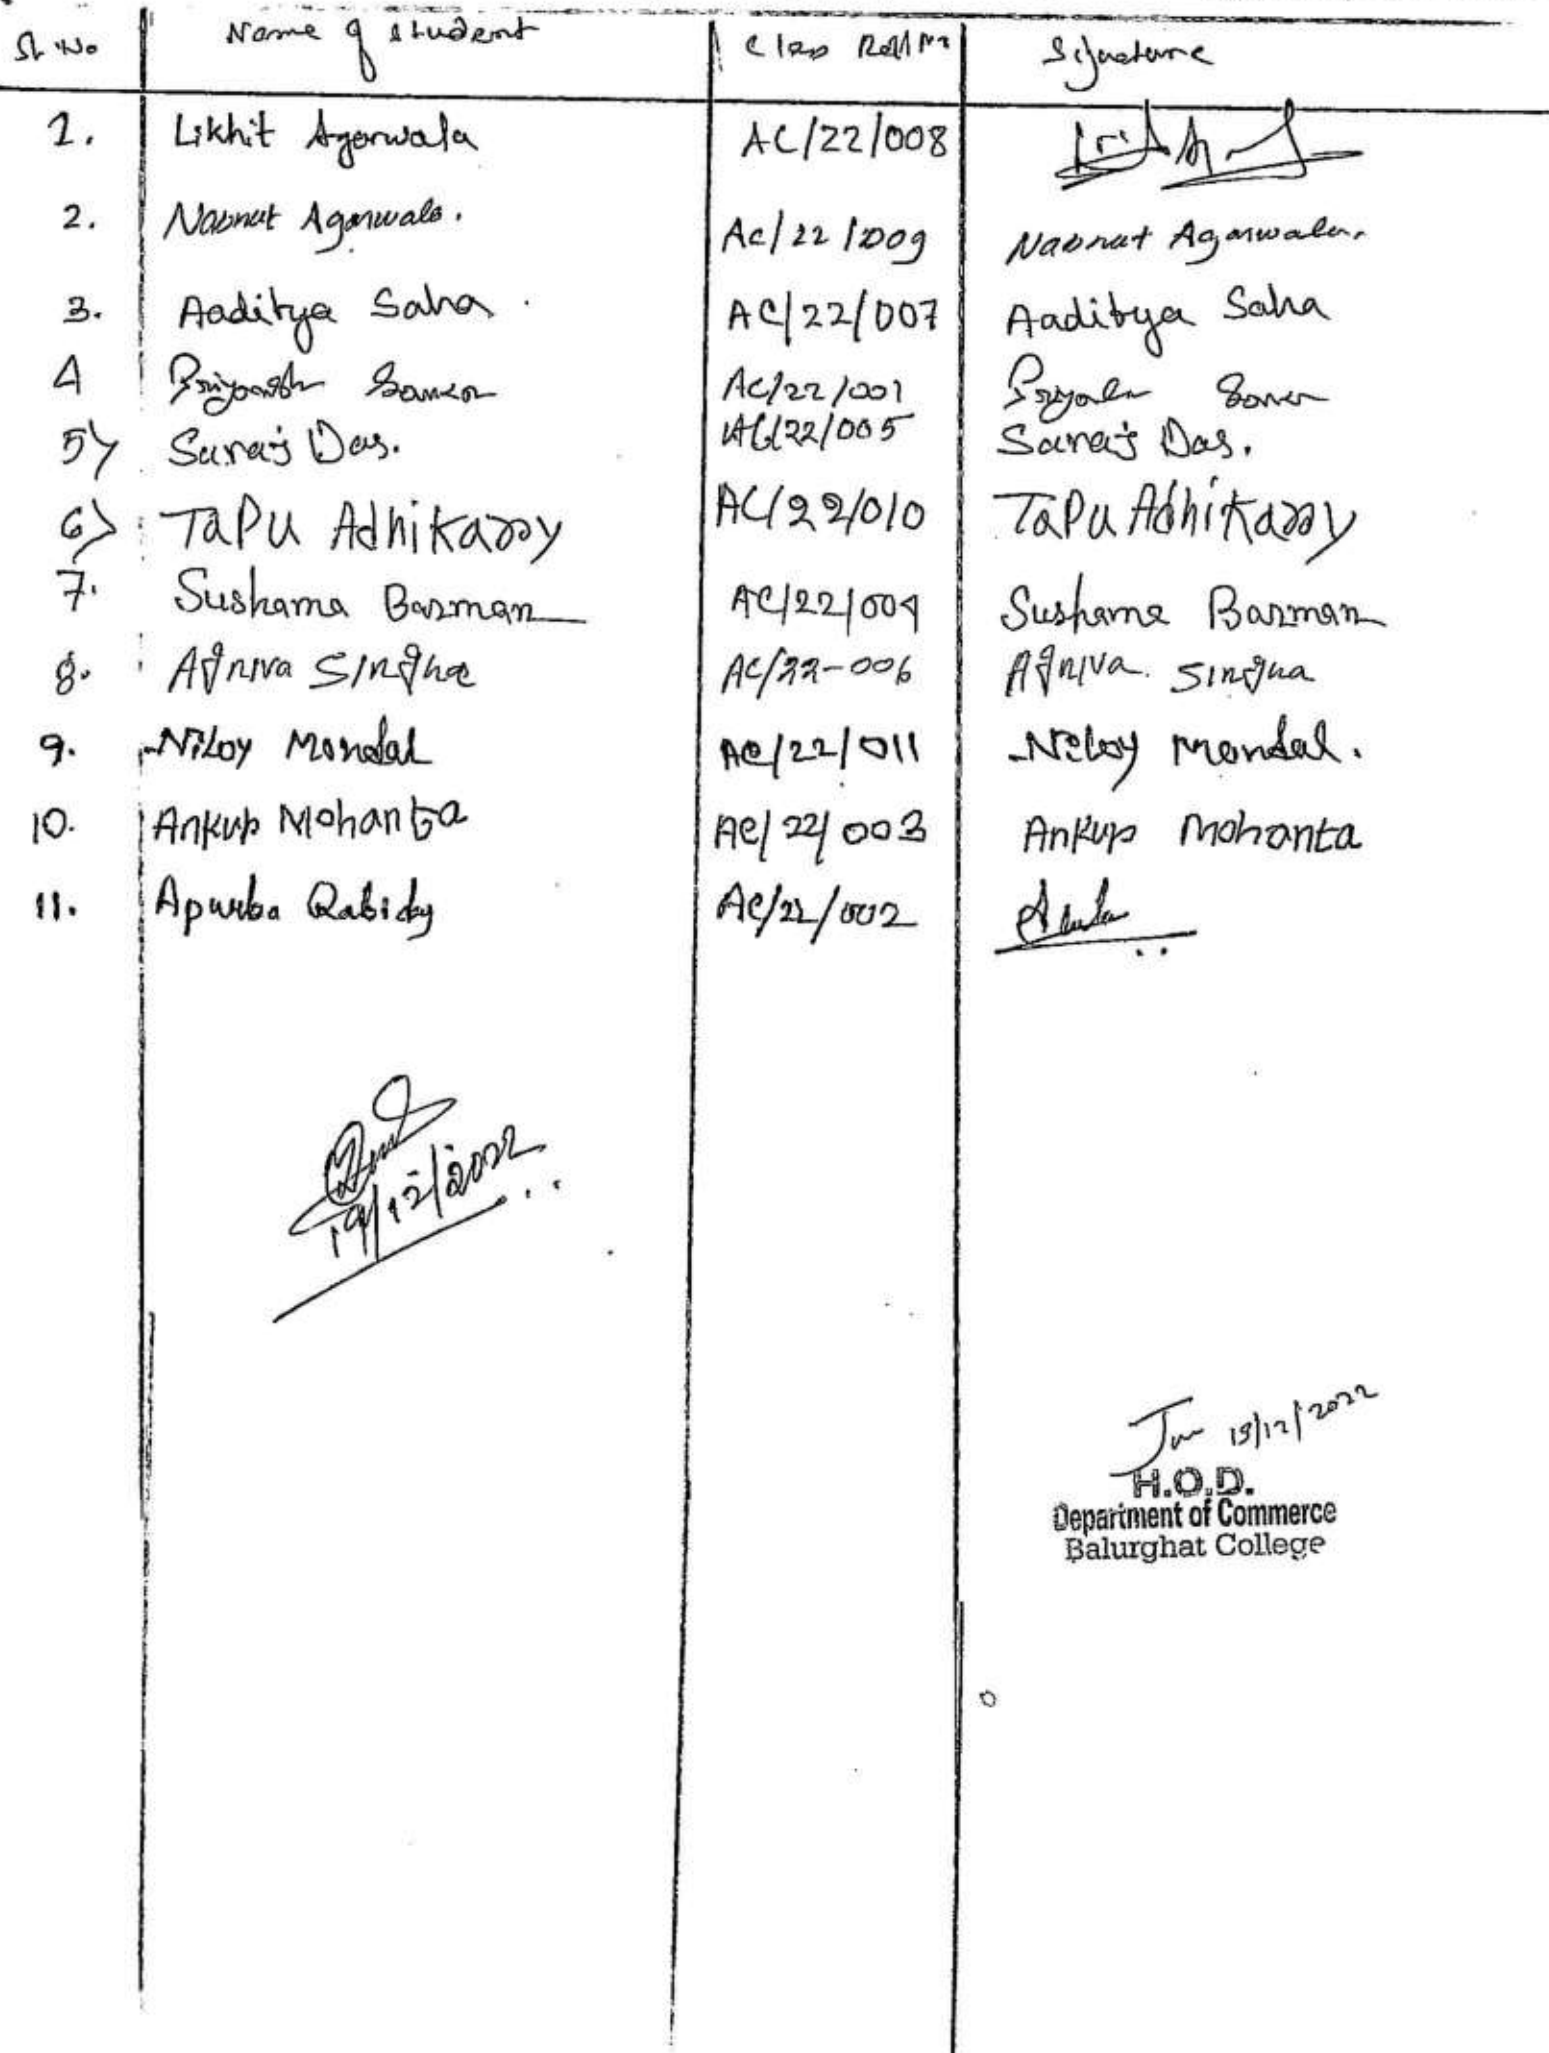 Sl. No Name of student Class Roll No Signature
1. Likhit Agarwala AC/22/008
2. Nabnut Agarwala. AC/22/009 Nabnut Agarwala.
3. Aaditya Saha. AC/22/007 Aaditya Saha
4 AC/22/001
5) Suraj Das. AC/22/005 Suraj Das.
6) TaPu Adhikary AC/22/010 TaPu Adhikary
7. Sushama Barman AC/22/004 Sushama Barman
8. Agniva Singha AC/22-006 Agniva Singha
9. Niloy Mondal AC/22/011 Niloy Mondal.
10. Ankur Mohanta AC/22/003 Ankur Mohanta
11. Apurba AC/22/002
19/12/2022
19/12/2022
H.O.D.
Department of Commerce
Balurghat College